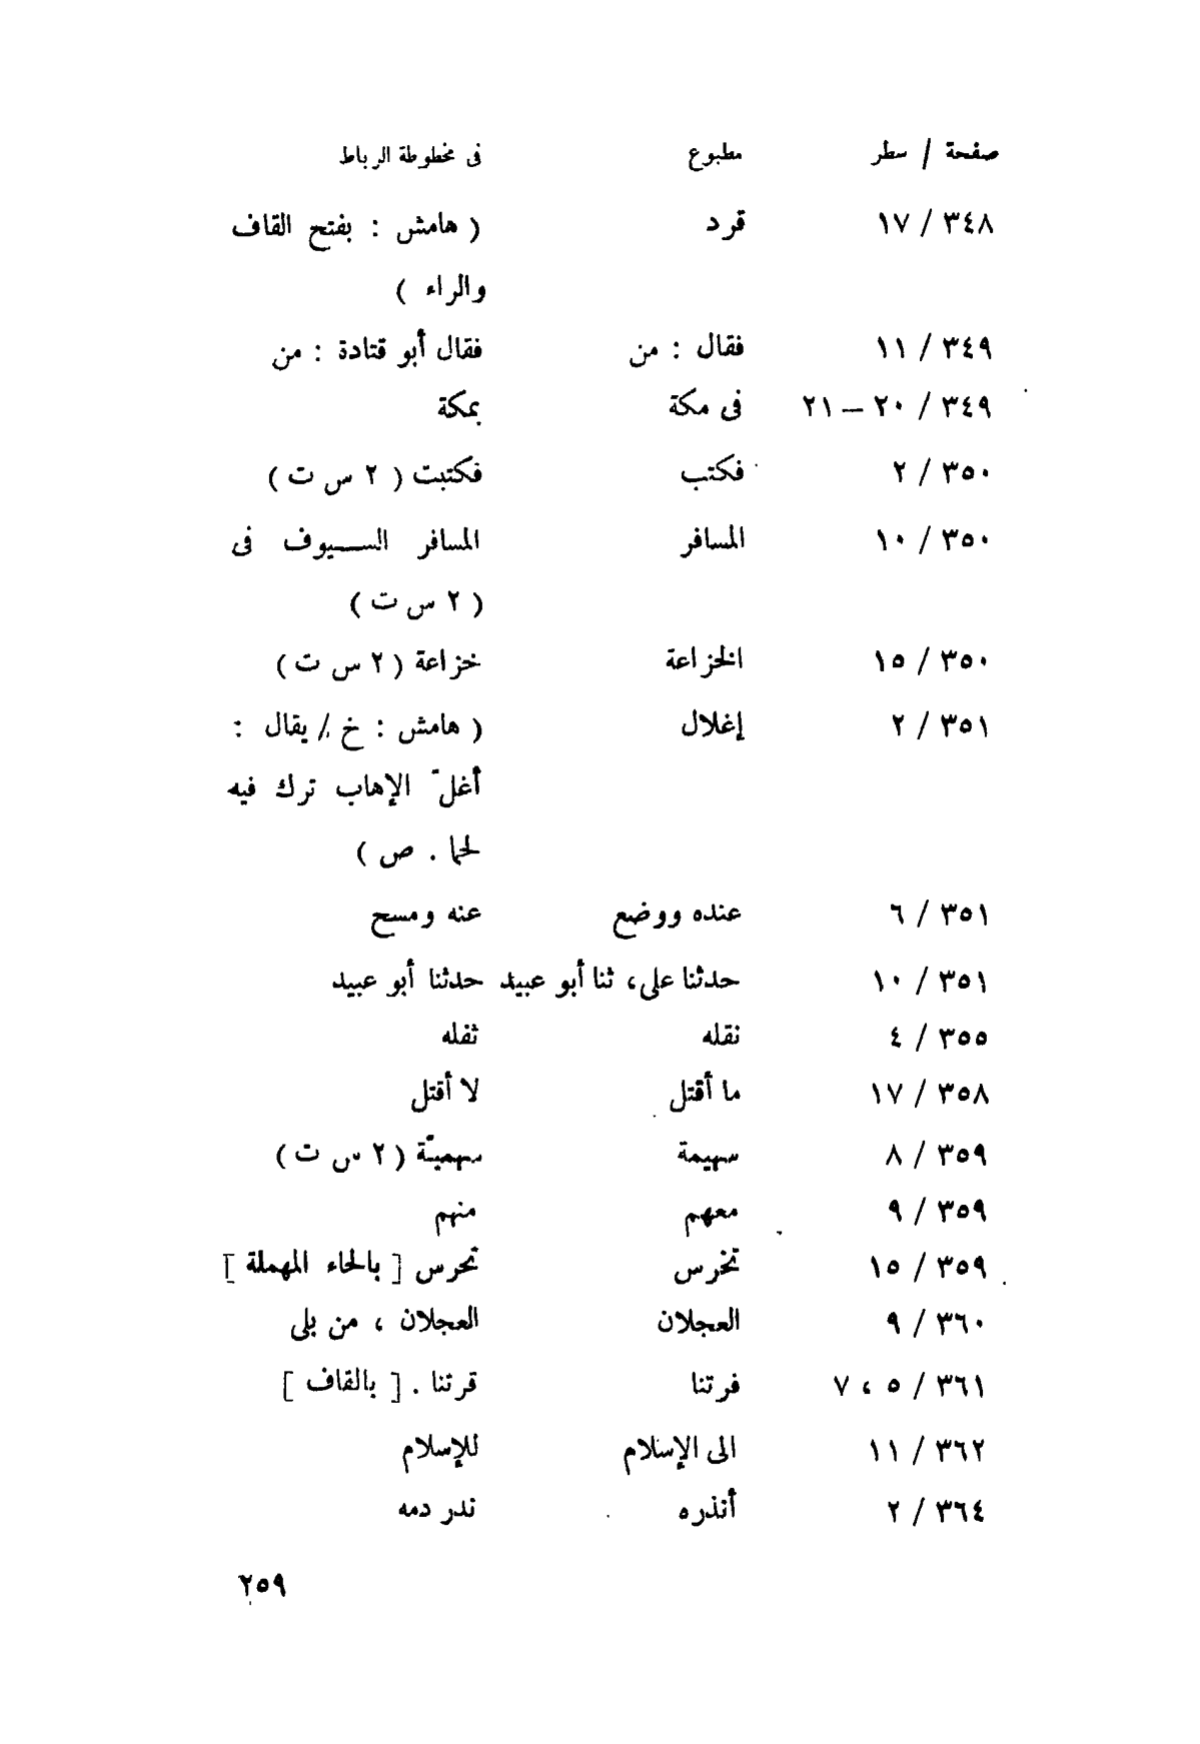 صفحة / سطر مطبوع فى مخطوطة الرباط
٣٤٨ / ١٧ قرد ( هامش : بفتح القاف
والراء )
٣٤٩ / ١١ فقال : من فقال أبو قتادة : من
٣٤٩ / ٢٠ – ٢١ فى مكة بمكة
٣٥٠ / ٢ فكتب فكتبت ( ٢ س ت )
٣٥٠ / ١٠ المسافر المسافر الســـيوف فى
( ٢ س ت )
٣٥٠ / ١٥ الخزاعة خزاعة ( ٢ س ت )
٣٥١ / ٢ إغلال ( هامش : خ / يقال :
أغلّ الإهاب ترك فيه
لحما . ص )
٣٥١ / ٦ عنده ووضع عنه ومسح
٣٥١ / ١٠ حدثنا على، ثنا أبو عبيد حدثنا أبو عبيد
٣٥٥ / ٤ نقله ثفله
٣٥٨ / ١٧ ما أقتل لا أقتل
٣٥٩ / ٨ سهيمة سهميّة ( ٢ س ت )
٣٥٩ / ٩ معهم منهم
٣٥٩ / ١٥ تخرس تحرس [ بالحاء المهملة ]
٣٦٠ / ٩ العجلان العجلان ، من بلى
٣٦١ / ٥ ، ٧ فرتنا قرتنا . [ بالقاف ]
٣٦٢ / ١١ الى الإسلام للإسلام
٣٦٤ / ٢ أنذره ندر دمه
٢٥٩